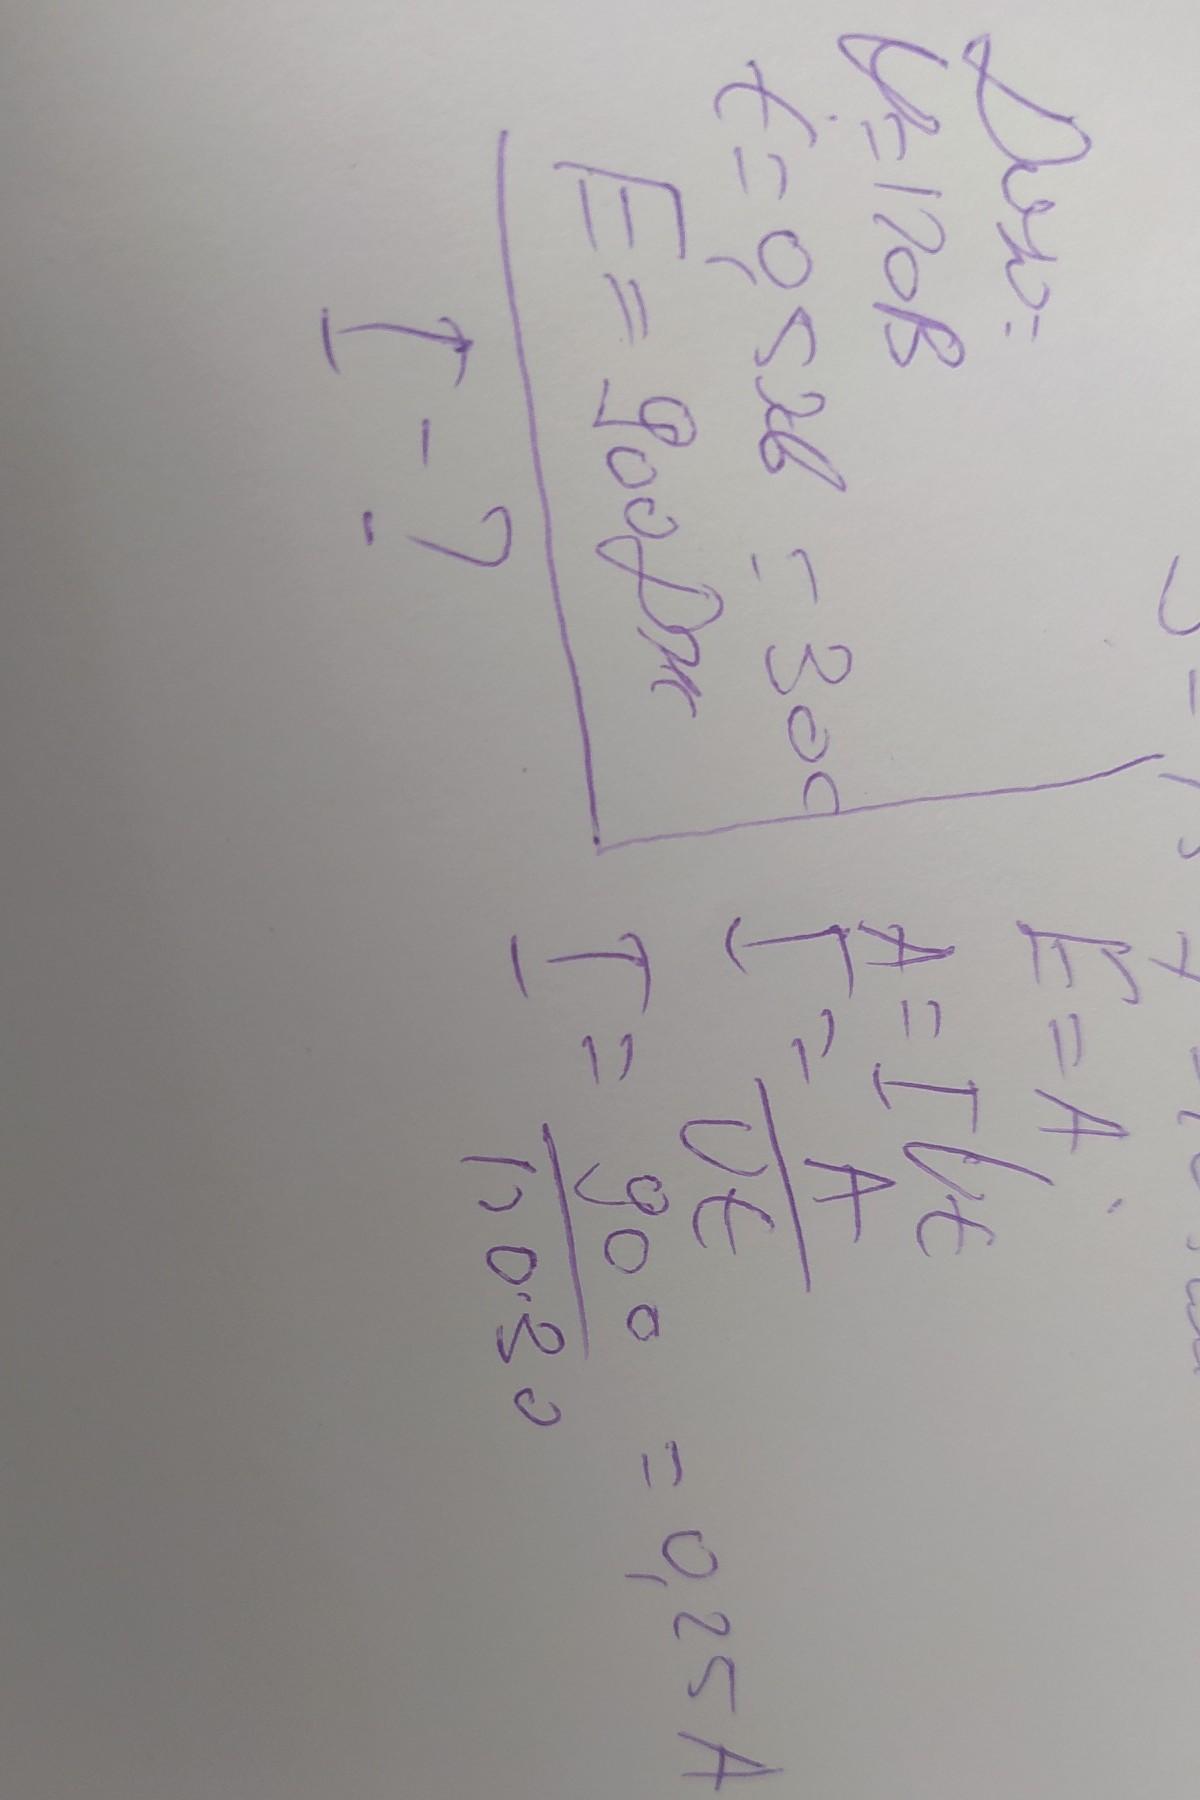 Дано:
U=120В
t=0,5хв = 30с
E=900Дж
I-?
E=A
A=IUt
I=A/Ut
I=900/120·30=0,25A